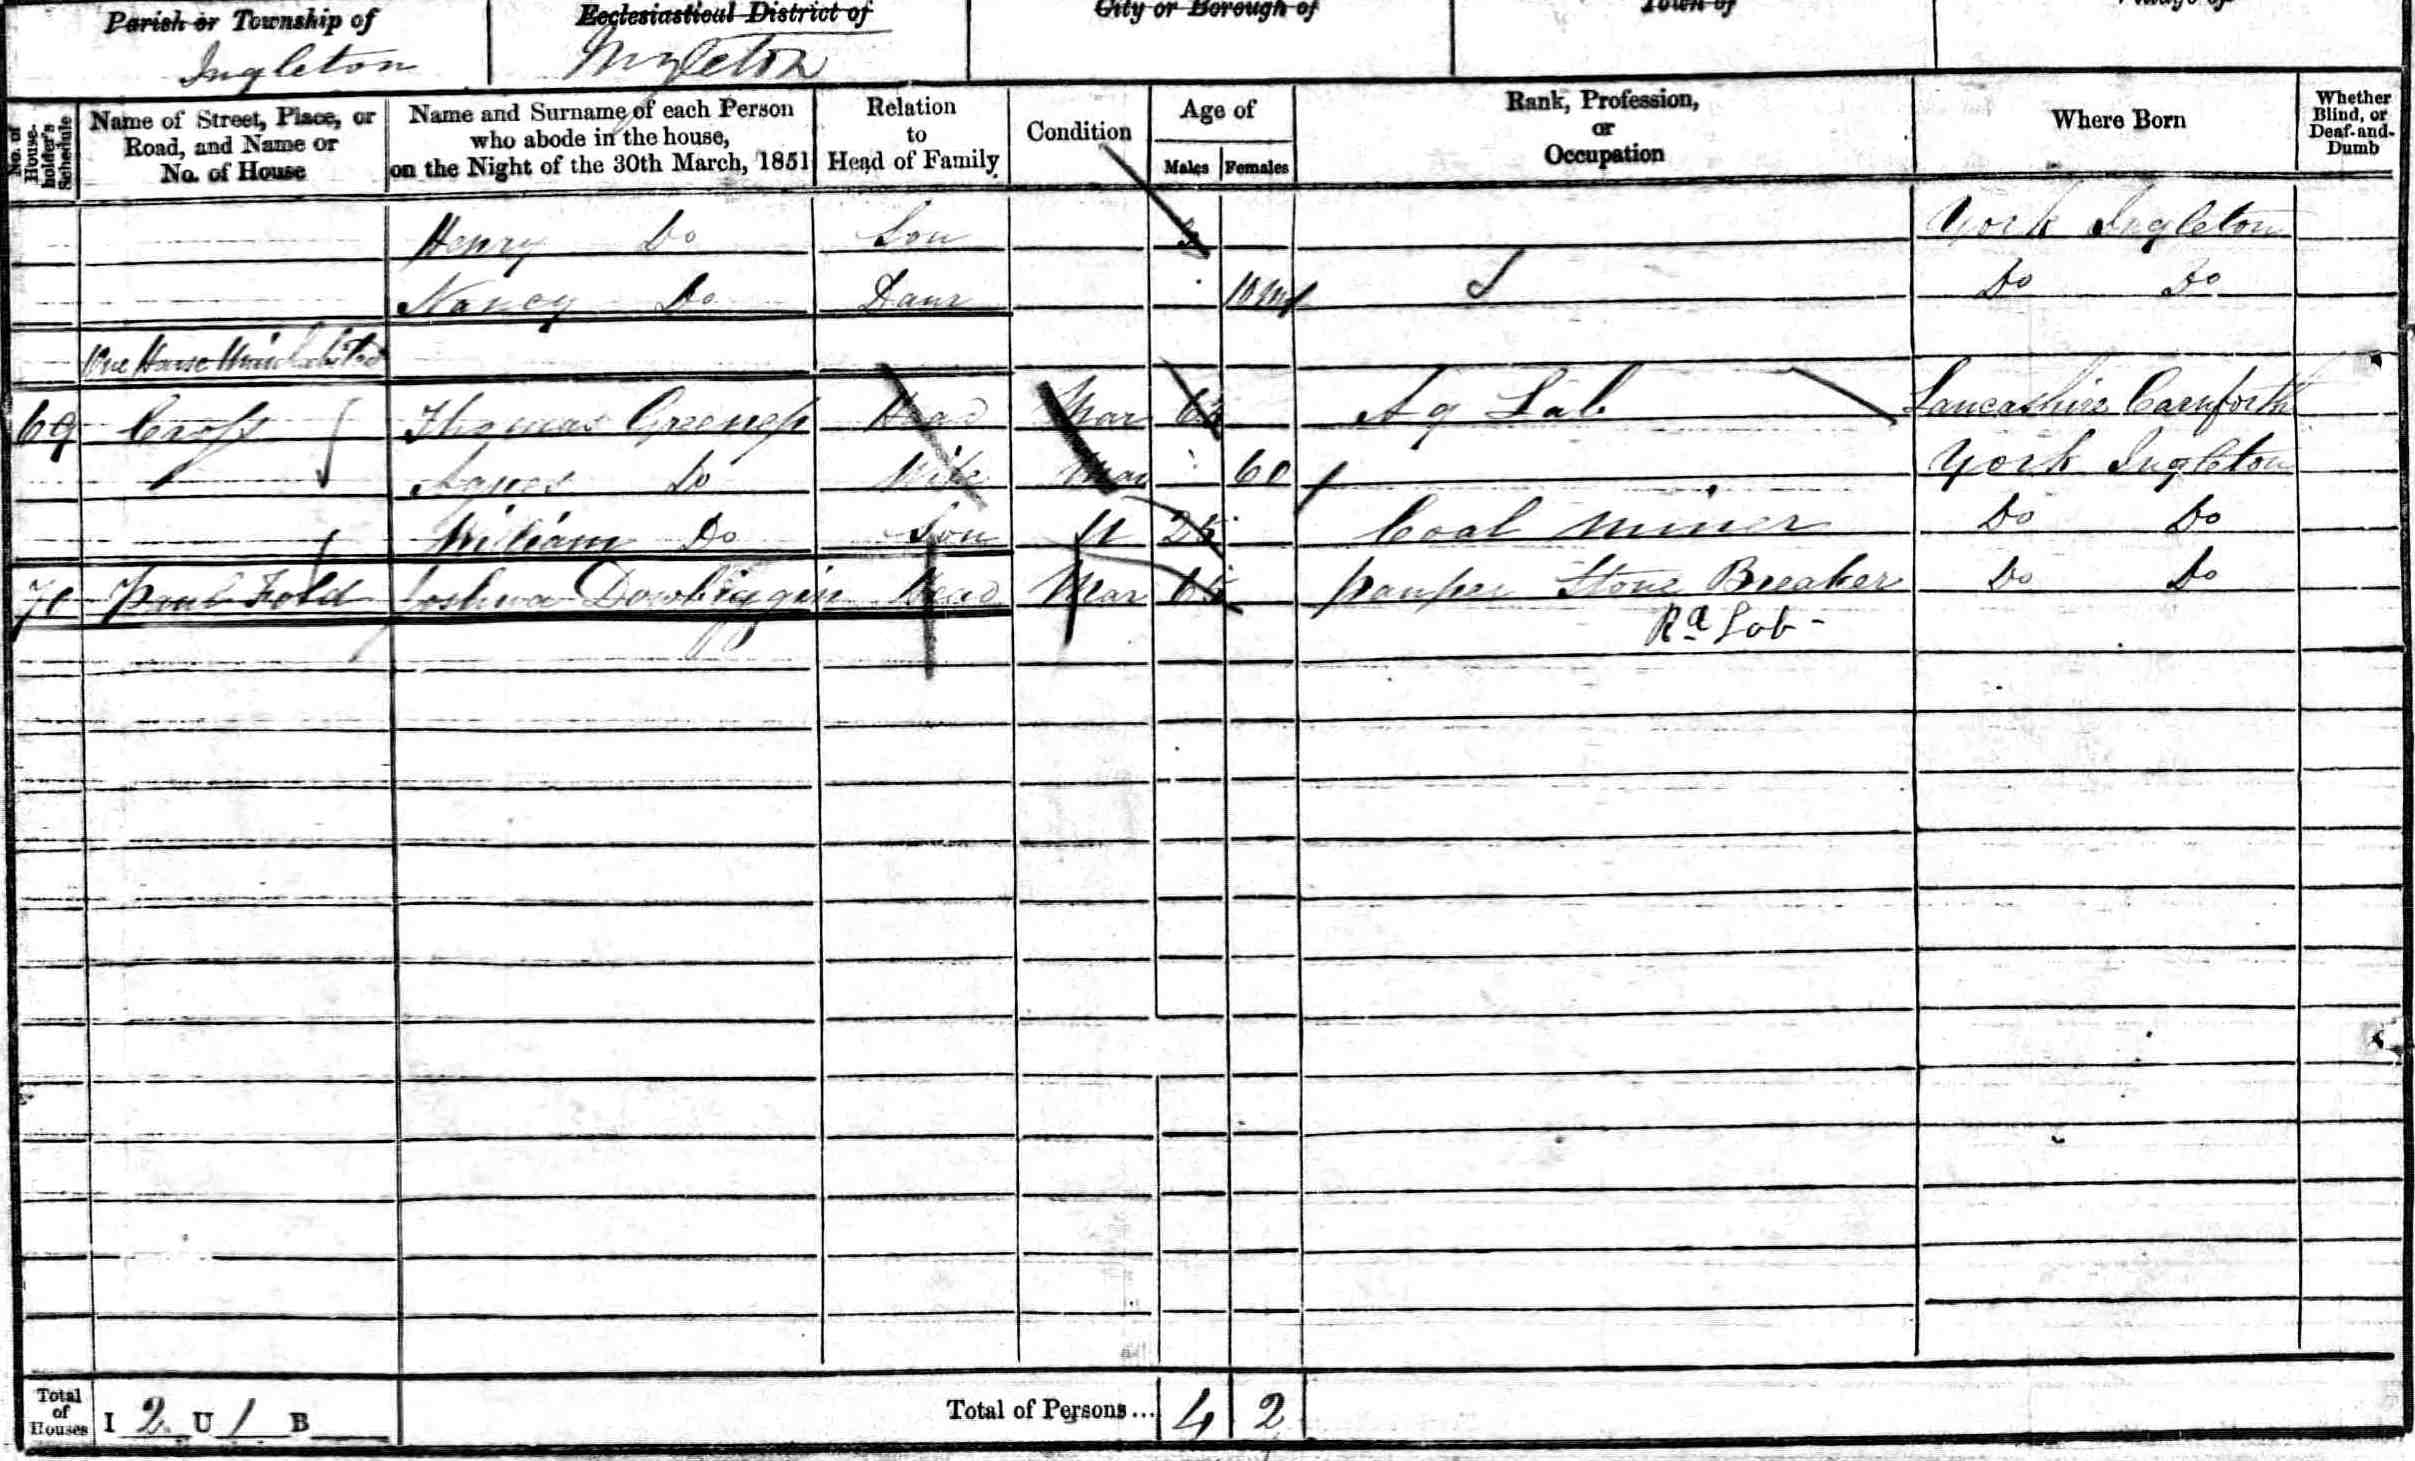 Parish or Township of
Ingleton
Ecclesiastical District of
Ingleton
City or Borough of
Town of
No. of House-holder's Schedule
Name of Street, Place, or Road, and Name or No. of House
Name and Surname of each Person who abode in the house, on the Night of the 30th March, 1851
Relation to Head of Family
Condition
Age of
Males Females
Rank, Profession, or Occupation
Where Born
Whether Blind, or Deaf-and-Dumb
Henry Do Son 3 York Ingleton
Nancy Do Daur 10 m Do Do
One House Uninhabited
69 Cross Thomas Greenep Head Mar Ag Lab Lancashire Carnforth
Agnes Do Wife Mar 60 York Ingleton
William Do Son U 25 Coal Miner Do Do
70 Fold Joshua Dowbiggin Head Mar 65 pauper Stone Breaker Do Do
Rd Lab -
Total of Houses I 2 U 1 B
Total of Persons... 4 2